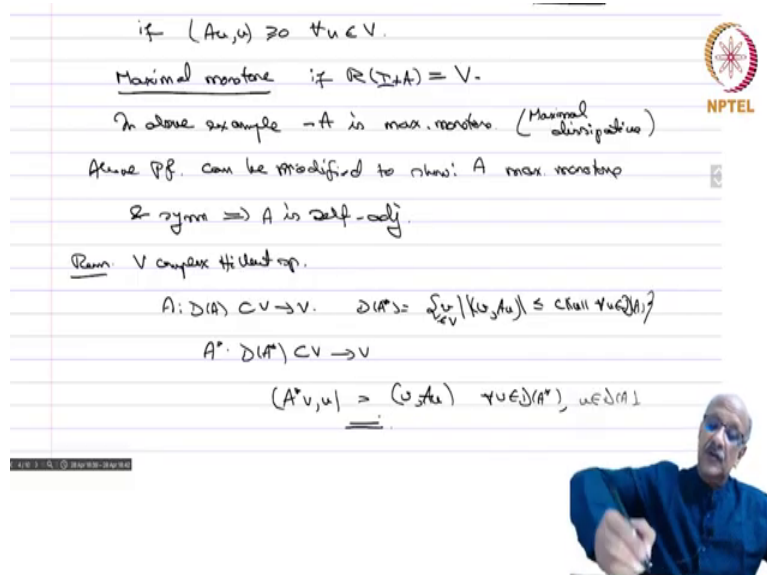 if (Au,u) ≥0 ∀u∈V.
Maximal monotone if R(I+A) = V.
In above example -A is max. monotone. (Maximal dissipative)
NPTEL
Above Pf. can be modified to show: A max. monotone
& symm ⟹ A is self-adj.
Rem. V complex Hilbert sp.
A: D(A) ⊂V → V. D(A*) = {v∈V | |(v,Au)| ≤ C‖u‖ ∀u∈D(A)}
A*: D(A*) ⊂V → V
(A*v,u) = (v,Au) ∀v∈D(A*), u∈D(A).